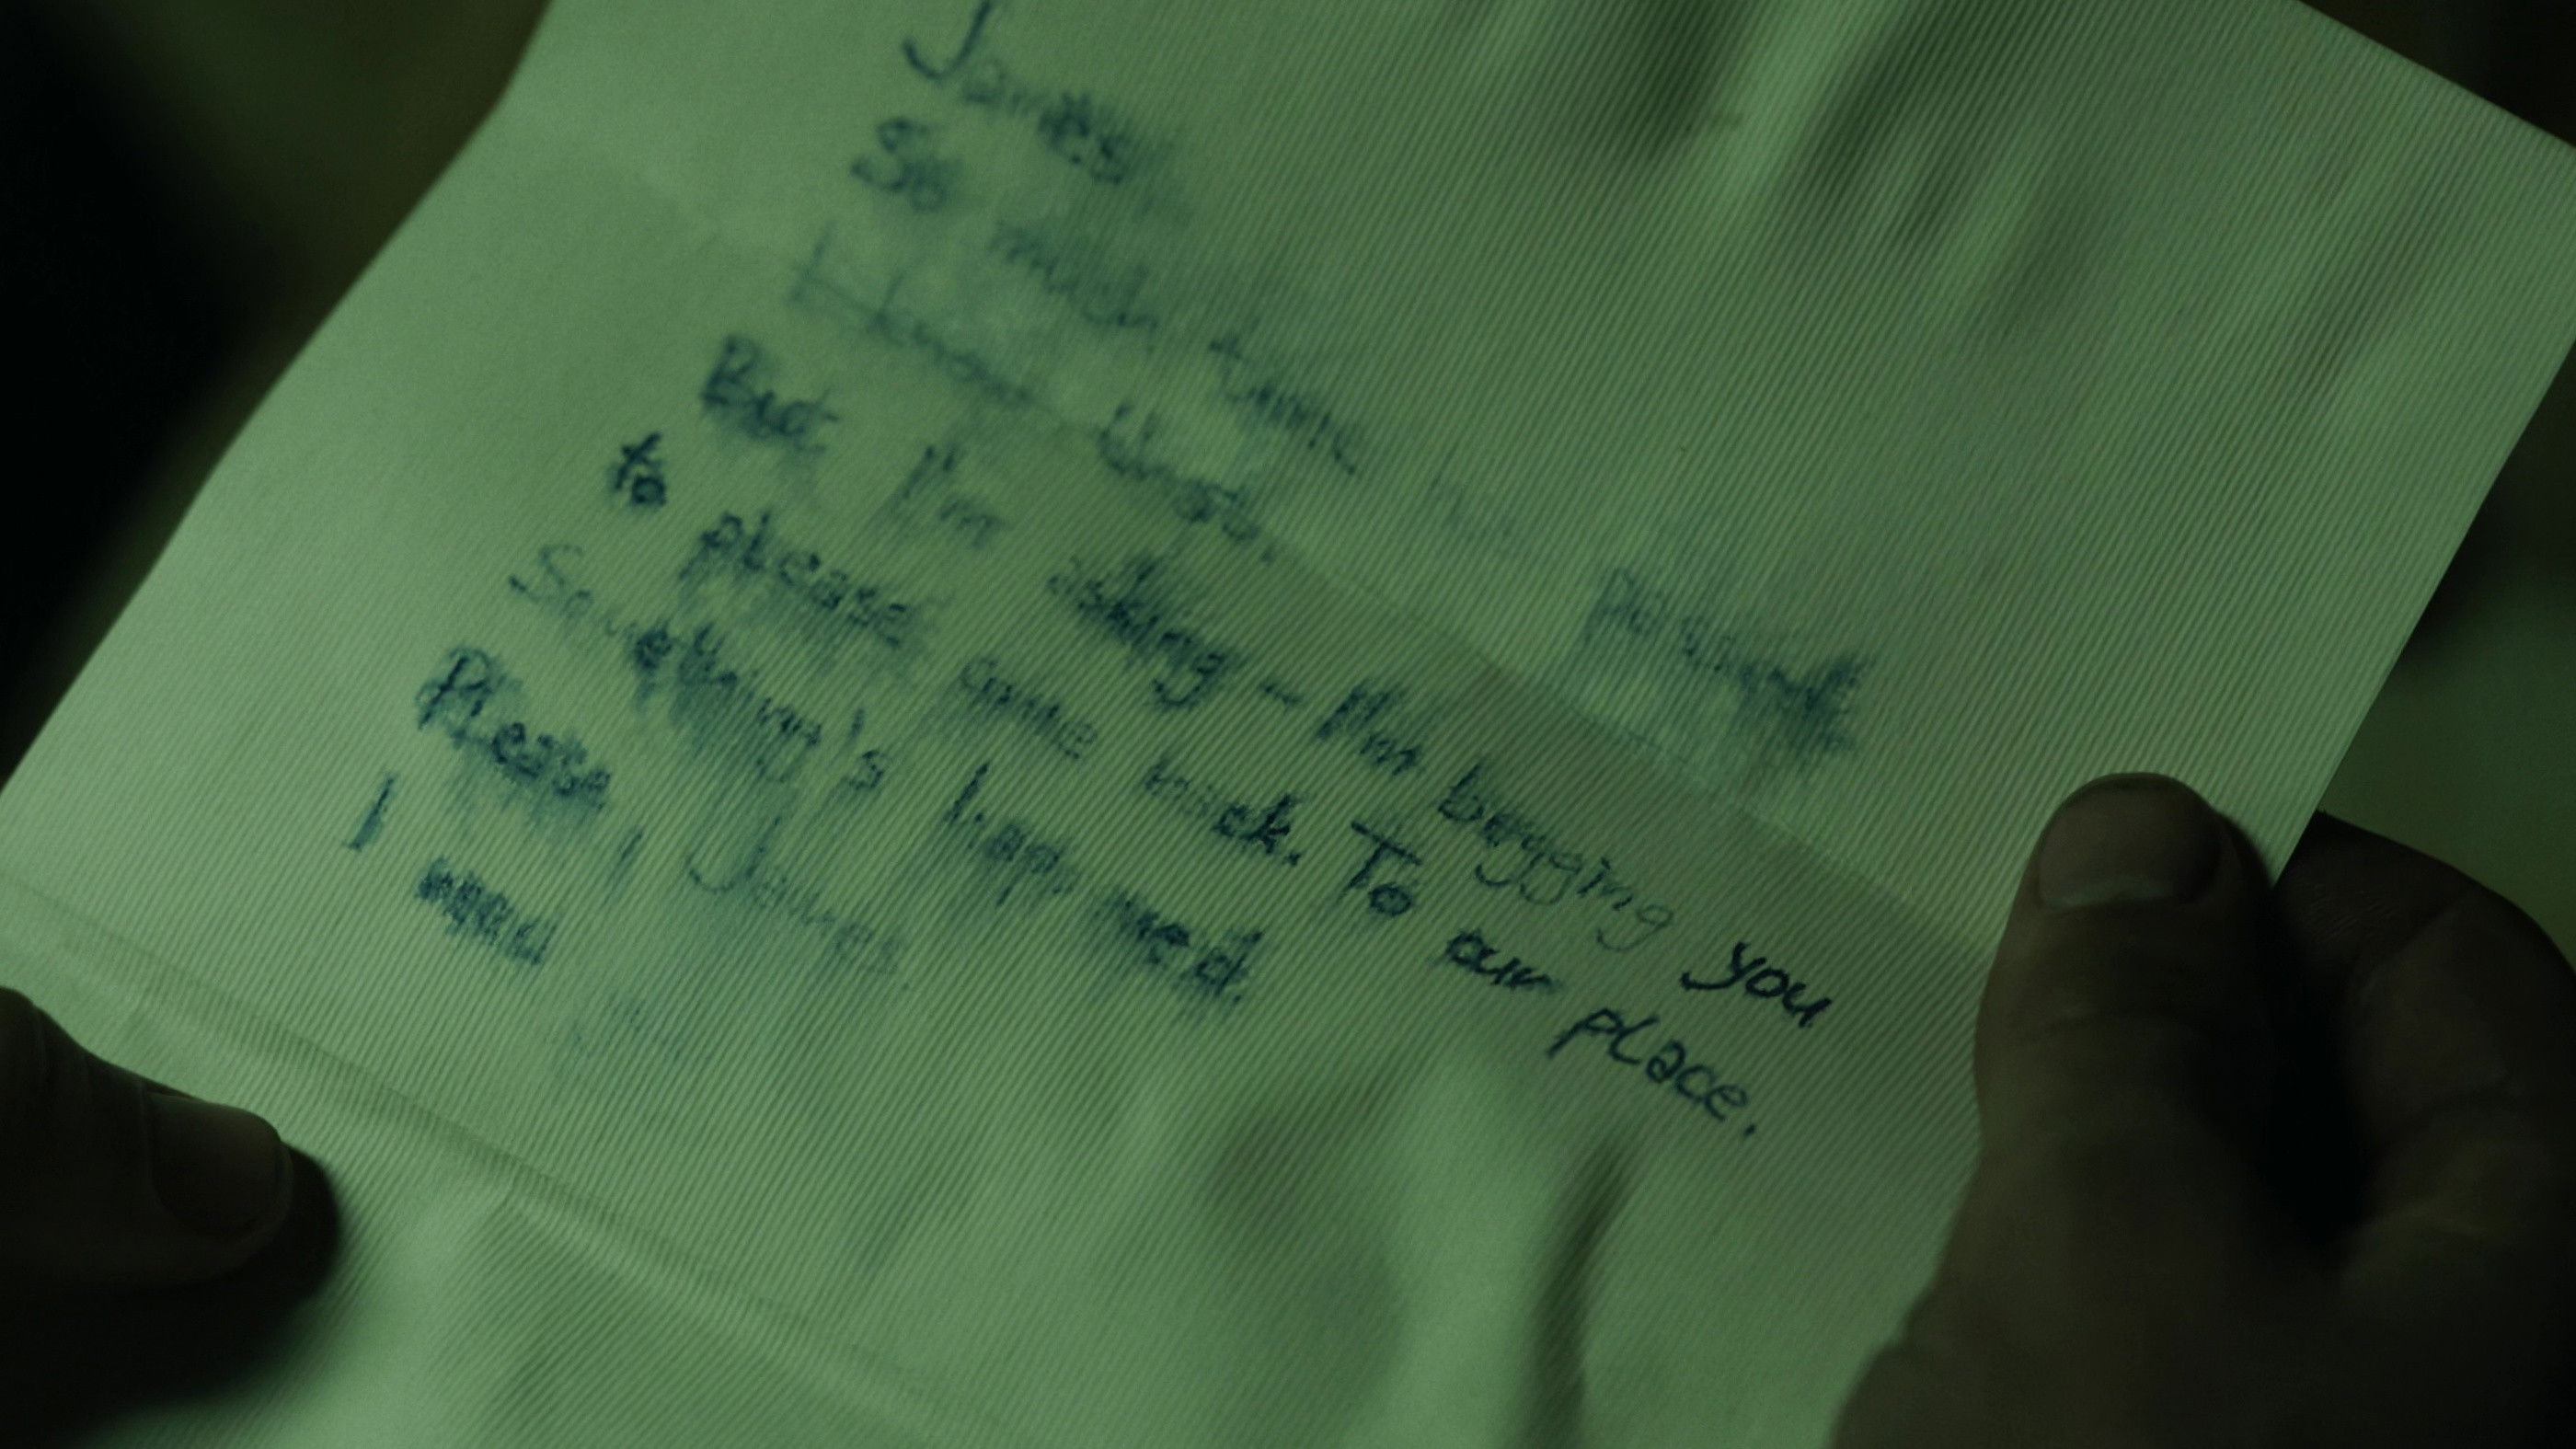 James
So much time has passed
I know that.
But I'm asking - I'm begging you
to please come back. To our place.
Something's happened.
Please, James.
I need